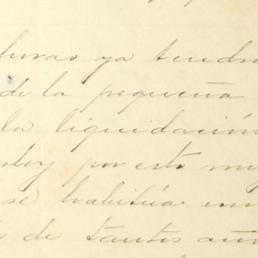 horas ya tendr
de la pequeña
la liquidación
estoy por esto muy
se habitúa uno
de tantos añ